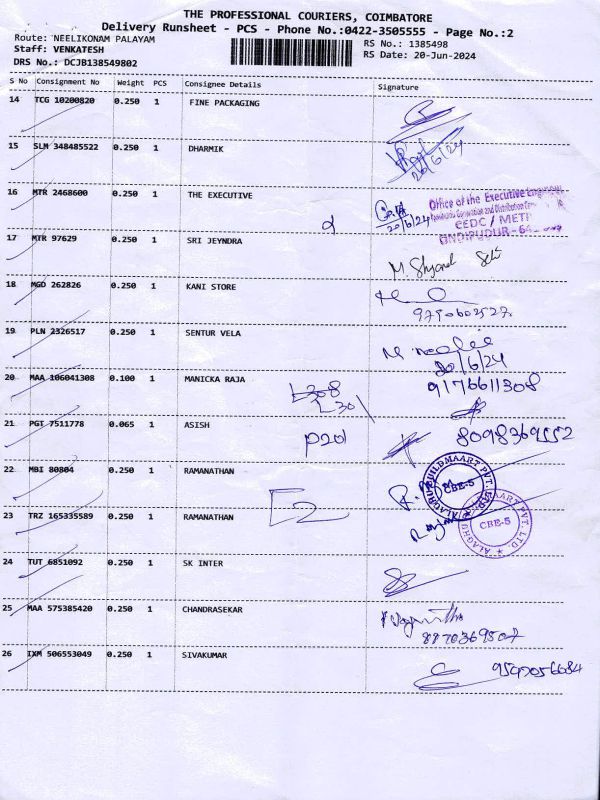 THE PROFESSIONAL COURIERS, COIMBATORE
Delivery Runsheet - PCS - Phone No.:0422-3505555 - Page No.:2
Route: NEELIKONAM PALAYAM
RS No.: 1385498
Staff: VENKATESH
RS Date: 20-Jun-2024
DRS No.: DCJB138549802
S No Consignment No Weight PCS Consignee Details Signature
14 TCG 10200820 0.250 1 FINE PACKAGING
15 SLM 348485522 0.250 1 DHARMIK
20/6/24
16 MTR 2468600 0.250 1 THE EXECUTIVE
20/6/24
Office of the Executive Engineer
CEDC / METRO
17 MTR 97629 0.250 1 SRI JEYNDRA
18 MGD 262826 0.250 1 KANI STORE
19 PLN 2326517 0.250 1 SENTUR VELA
20/6/24
20 MAA 106041308 0.100 1 MANICKA RAJA
9176611308
L301
21 PGT 7511778 0.065 1 ASISH
P201
8098369552
22 MBI 80804 0.250 1 RAMANATHAN
ALAGHU BUILDMAART PVT. LTD.
CBE-5
23 TRZ 165335589 0.250 1 RAMANATHAN
E2
CBE-5
24 TUT 6851092 0.250 1 SK INTER
25 MAA 575385420 0.250 1 CHANDRASEKAR
8870369507
26 IXM 506553049 0.250 1 SIVAKUMAR